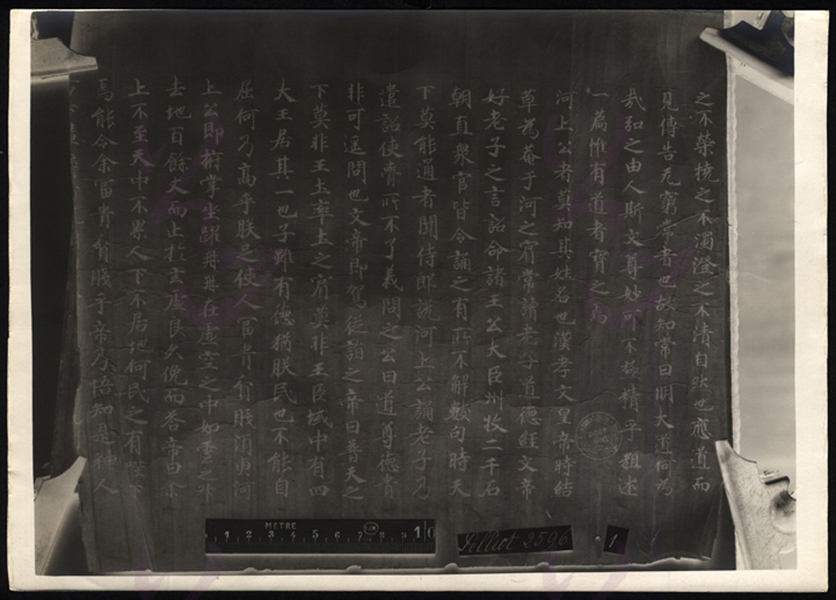 之不榮撓之不濁澄之不清自然也應道而
見傳告无窮常者也故知常曰明大道何為
哉弘之由人斯文尊妙可不極精乎粗述
一篇惟有道者寶之焉
河上公者莫知其姓名也漢孝文皇帝時結
草為菴于河之賔常讀老子道德經文帝
好老子之言詔命諸王公大臣州牧二千石
朝直衆官皆令誦之有所不解數句時天
下莫能通者聞侍郎說河上公誦老子乃
遣詔使賫所不了義問之公曰道尊德貴
非可遙問也文帝即駕從詣之帝曰普天之
下莫非王土率土之賔莫非王臣域中有四
大王居其一也子雖有德猶朕民也不能自
屈何乃高乎朕足使人富貴貧賤須臾河
上公即拊掌坐躍冉冉在虛空之中如雲之升
去地百餘丈而止於玄虛良久俛而荅帝曰余
上不至天中不累人下不居地何民之有陛下
焉能令余富貴貧賤乎帝乃悟知是神人
METRE
1 2 3 4 5 6 7 8 9 10
Pelliot 2596
1